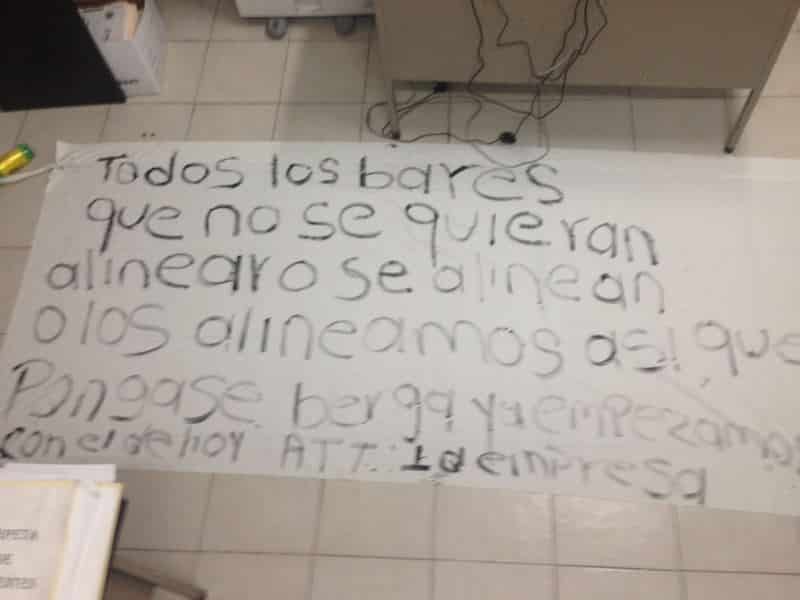 Todos los bares
que no se quieran
alinear o se alinean
o los alineamos asi que
Pongase berga ya empezamos
con el de hoy ATT. la empresa